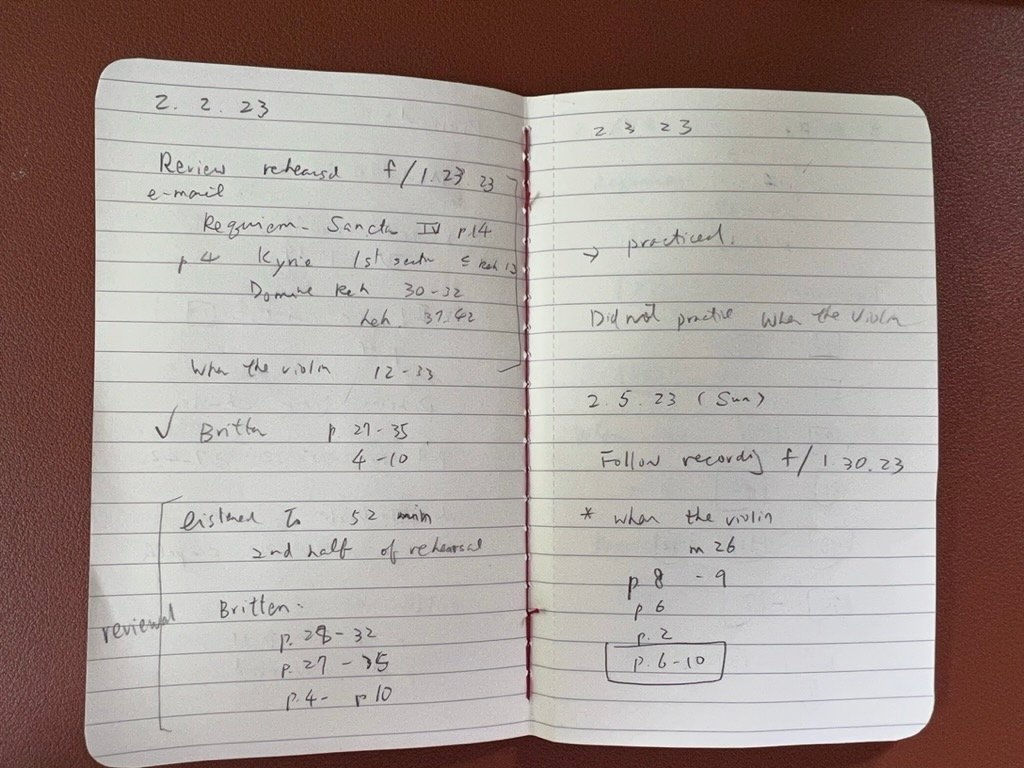 2. 2. 23
Review rehearsal f/1.23 23
e-mail
Requiem - Sanctu IV p.14
p 4 Kyrie 1st
Domine Reh 30-32
Reh. 37-42
When the violin 12-33
✓ Britten p 27-35
4-10
listened To 52 min
2nd half of rehearsal
reviewed
Britten.
p. 28-32
p. 27-35
p. 4- p 10
2 3 23
→ practiced.
Did not practice When the violin
2. 5. 23 (Sun)
Follow recording f/1 30.23
* When the violin
m 26
p 8 - 9
p 6
p. 2
p. 6-10